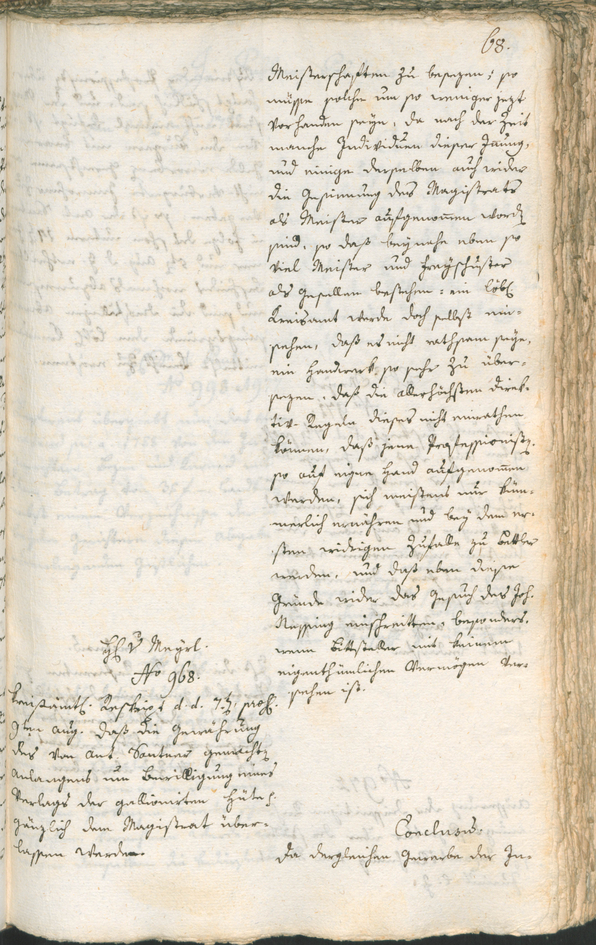 68.
Meisterschaften zu besezen; so
müsse solche um so weniger jezt
vorhanden seyn, da nach der Zeit
manche Individuen dieser Innung,
und einige derselben auch wider
die Gesinnung des Magistrats
als Meister aufgenommen word
sind, so daß beynahe eben so
viel Meister und Freyschuster
als Gesellen bestehen: ein löbl
Kreisamt werde doch selbst ein-
sehen, daß es nicht rathsam seye,
ein Handwerk so sehr zu über-
sezen, daß die allerhöchsten direk-
tiv Regeln dieses nicht einrathen
können, daß jene Professionist,
so auf eigne Hand aufgenommen
werden, sich meistens nur küm-
merlich ernähren und bey dem er-
sten widrigen Zufalle zu Bettler
werden, und daß eben diese
Gründe wider das Gesuch des Joh.
einschreitten, besonders,
wenn Bittsteller mit keinem
eigenthümlichen Vermögen ver-
sehen ist.
H v Meyrl.
No 968.
Kreisämtl. Reskript d. d. 7. pros.
9ten aug. daß die Gewährung
des von Ant. Santner gemacht
Anlangens um Bewilligung eines
Verlags der gallonirten Hüte
gänzlich dem Magistrat über-
lassen werde.
Conclusum.
Da dergleichen Gewerbe der In-